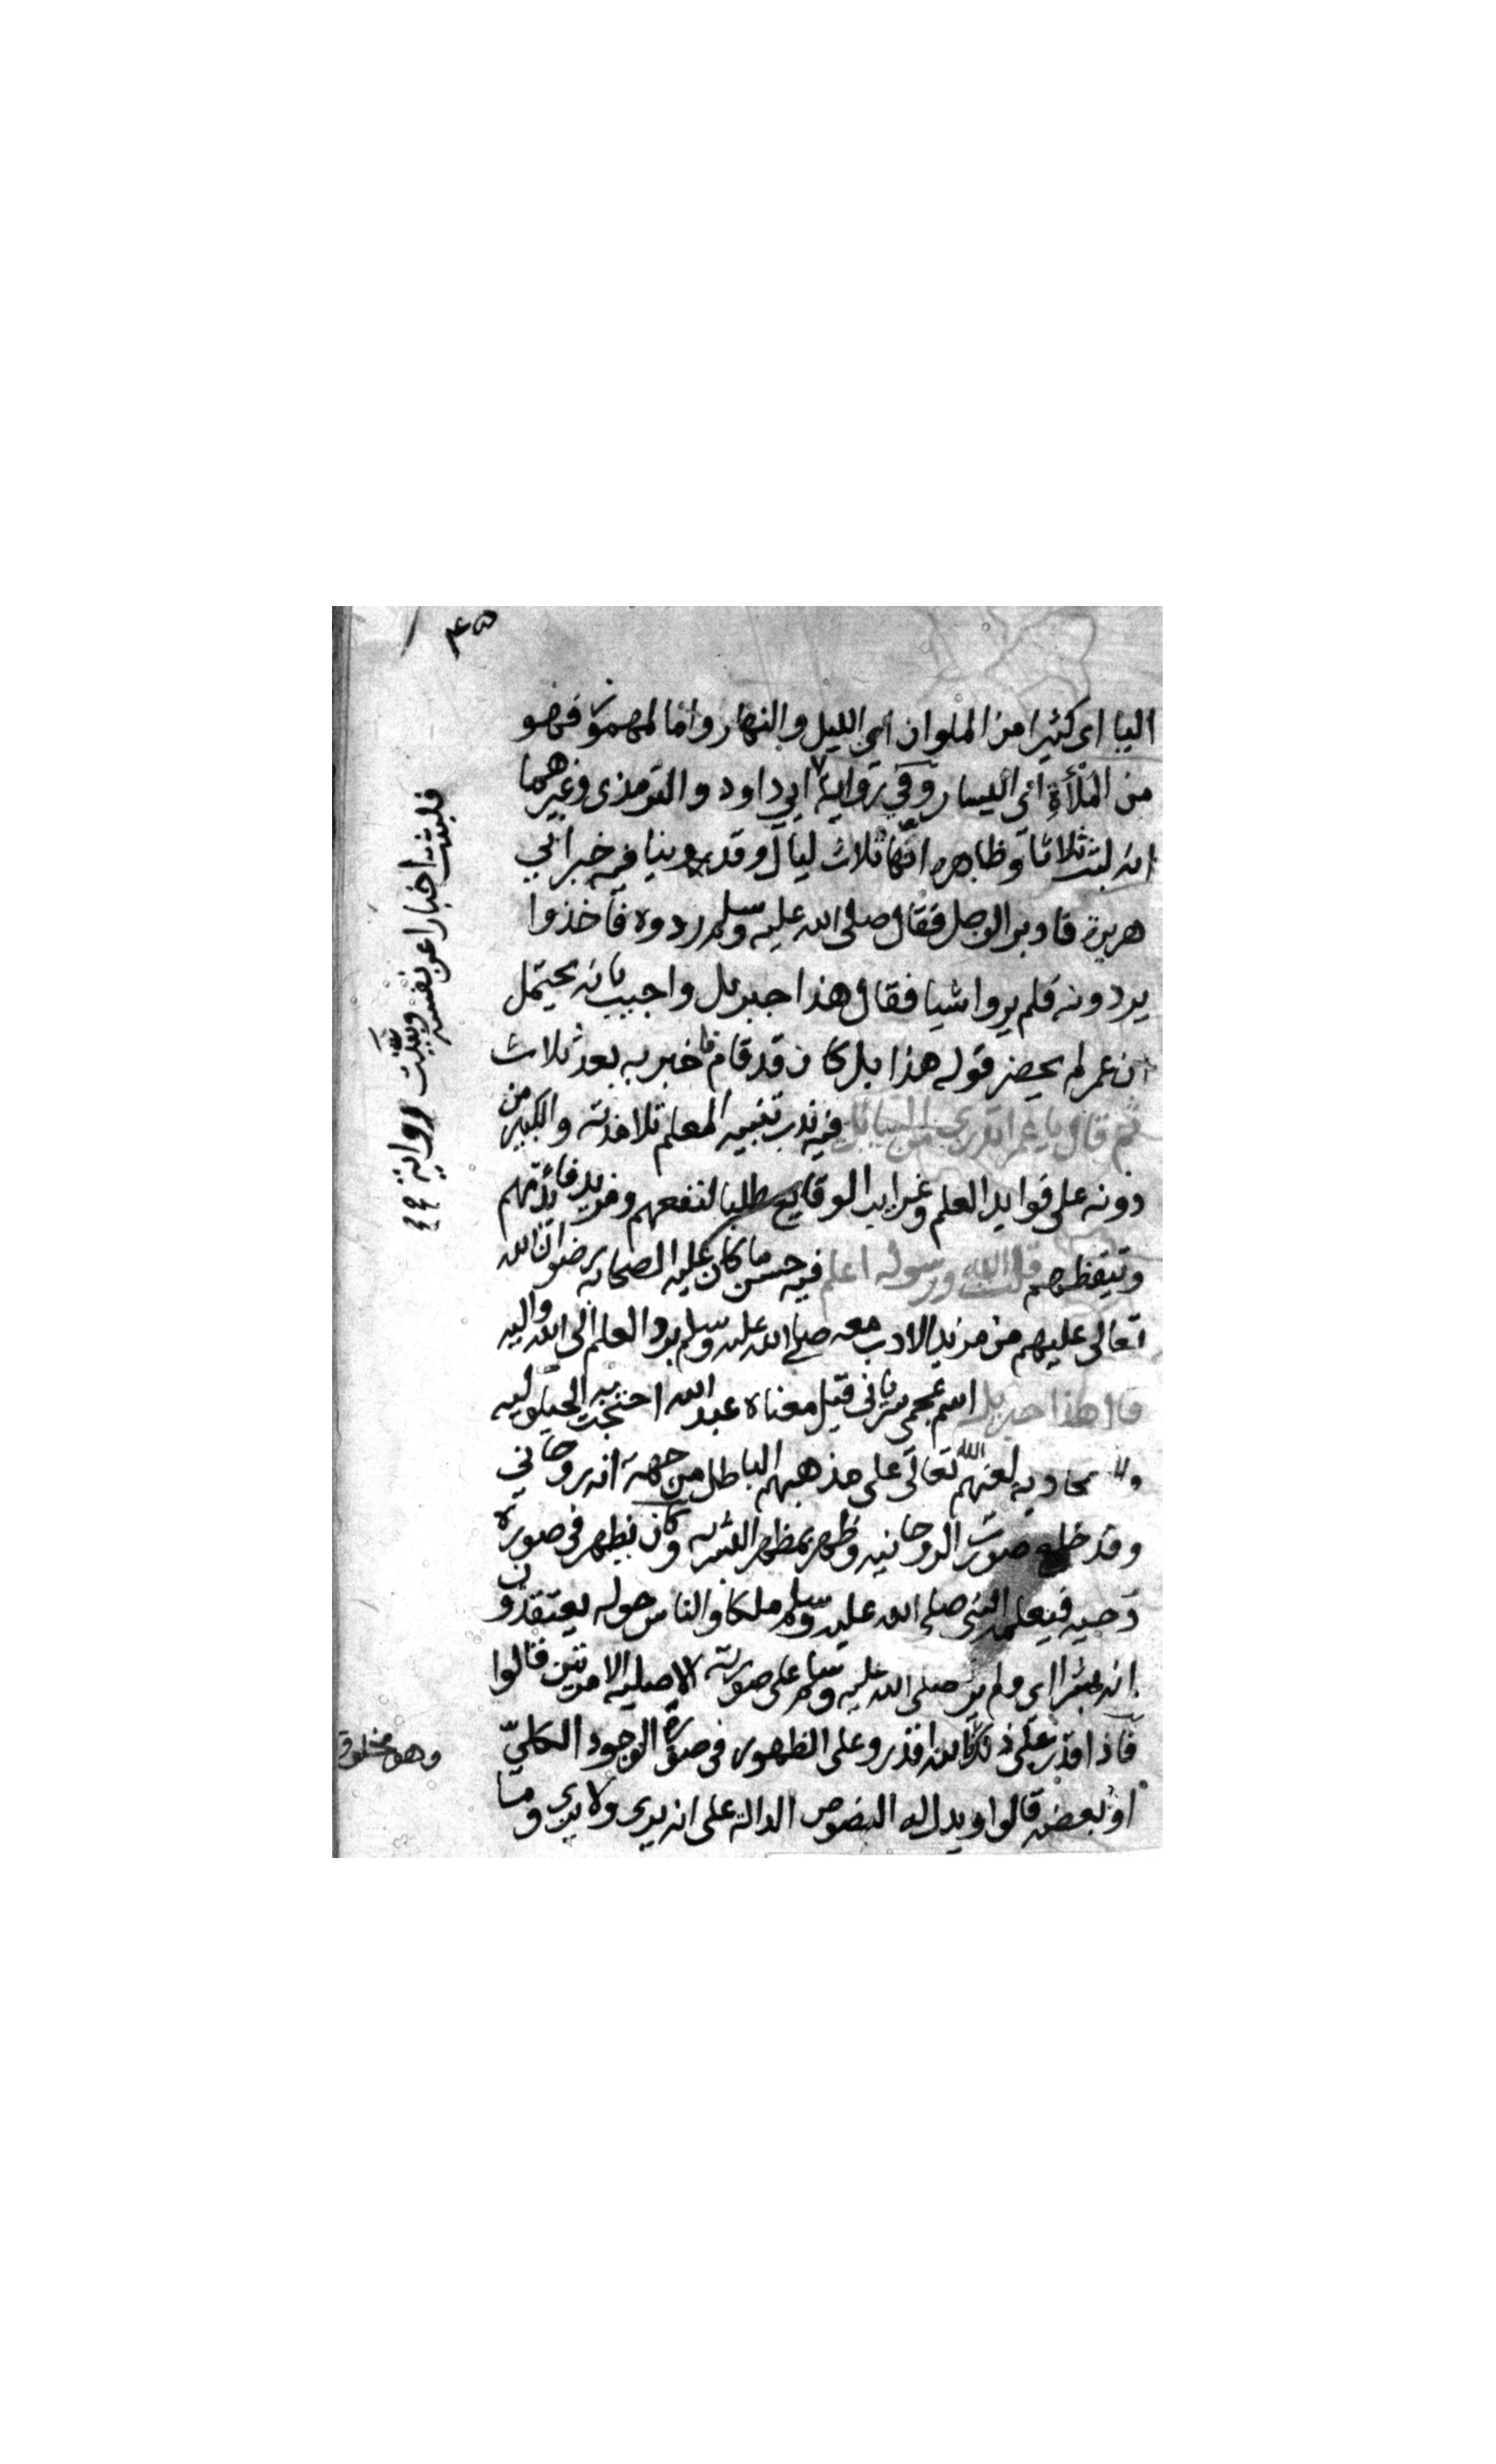 ٤٥
اليا اى كثيرا من الملوان اي الليل والنهار واما المهموز فهو
من الملأة اي اليسار وفي رواية ابي داود والترمذى وغيرهما
انه لبث ثلاثا وظاهره انها ثلاث ليال وقد روينا فيه خبر ابي
هريرة فادبر الرجل فقال صلى الله عليه وسلم ردوه فاخذوا
يردونه فلم يروا شيا فقال هذا جبريل واجيب بانه يحتمل
ان عمر لم يحضر قوله هذا بل كان قد قام فاخبر به بعد ثلاث
ثم قال يا عمر اتدري من السائل فيه ندب تنبيه المعلم تلامذته والكبير من
دونه على فوايد العلم وغرايب الوقايع طلبا لنفعهم ومزيد فائدتهم
وتيقظهم قلت الله ورسوله اعلم فيه حسن ما كان عليه الصحابه رضوان الله
تعالى عليهم من مزيد الادب معه صلى الله عليه وسلم برد العلم الى الله واليه
قال هذا جبريل اسم عجمى سرياني قيل معناه عبد الله احتجت به الحلولية
والاتحاديه لعنهم الله تعالى على مذهبهم الباطل من جهة انه روحاني
وقد خلع صورت الروحانيه وظهر بمظهر البشريه وكان يظهر في صورة
دحيه فيعلمه النبي صلى الله عليه وسلم ملكا والناس حوله يعتقدون
انه بشرا اى ولم ير صلى الله عليه وسلم على صورته الاصليه الا مرتين قالوا
فاذا اقدر على ذلك فالله اقدر وعلى الظهور في صورة الوجود الكليّ
او بعضه قالوا ويدل له النصوص الدالة على انه يرى ولا يرى وما
فلبثت اخبارا عن نفسه وبينت رواية
وهو مخلوق